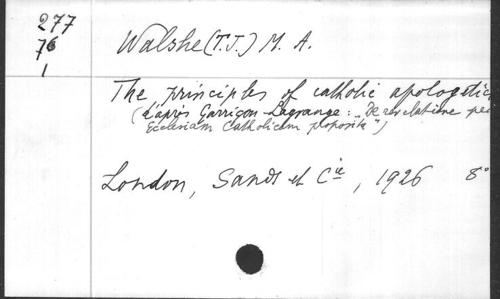 277
76
1
Walshe (T.J.) M. A.
The principles of catholic apologetic
(d'après Garrigou-Lagrange: "De revelatione per
Ecclesiam Catholicam proposita")
London, Sands et Cie, 1926 8°